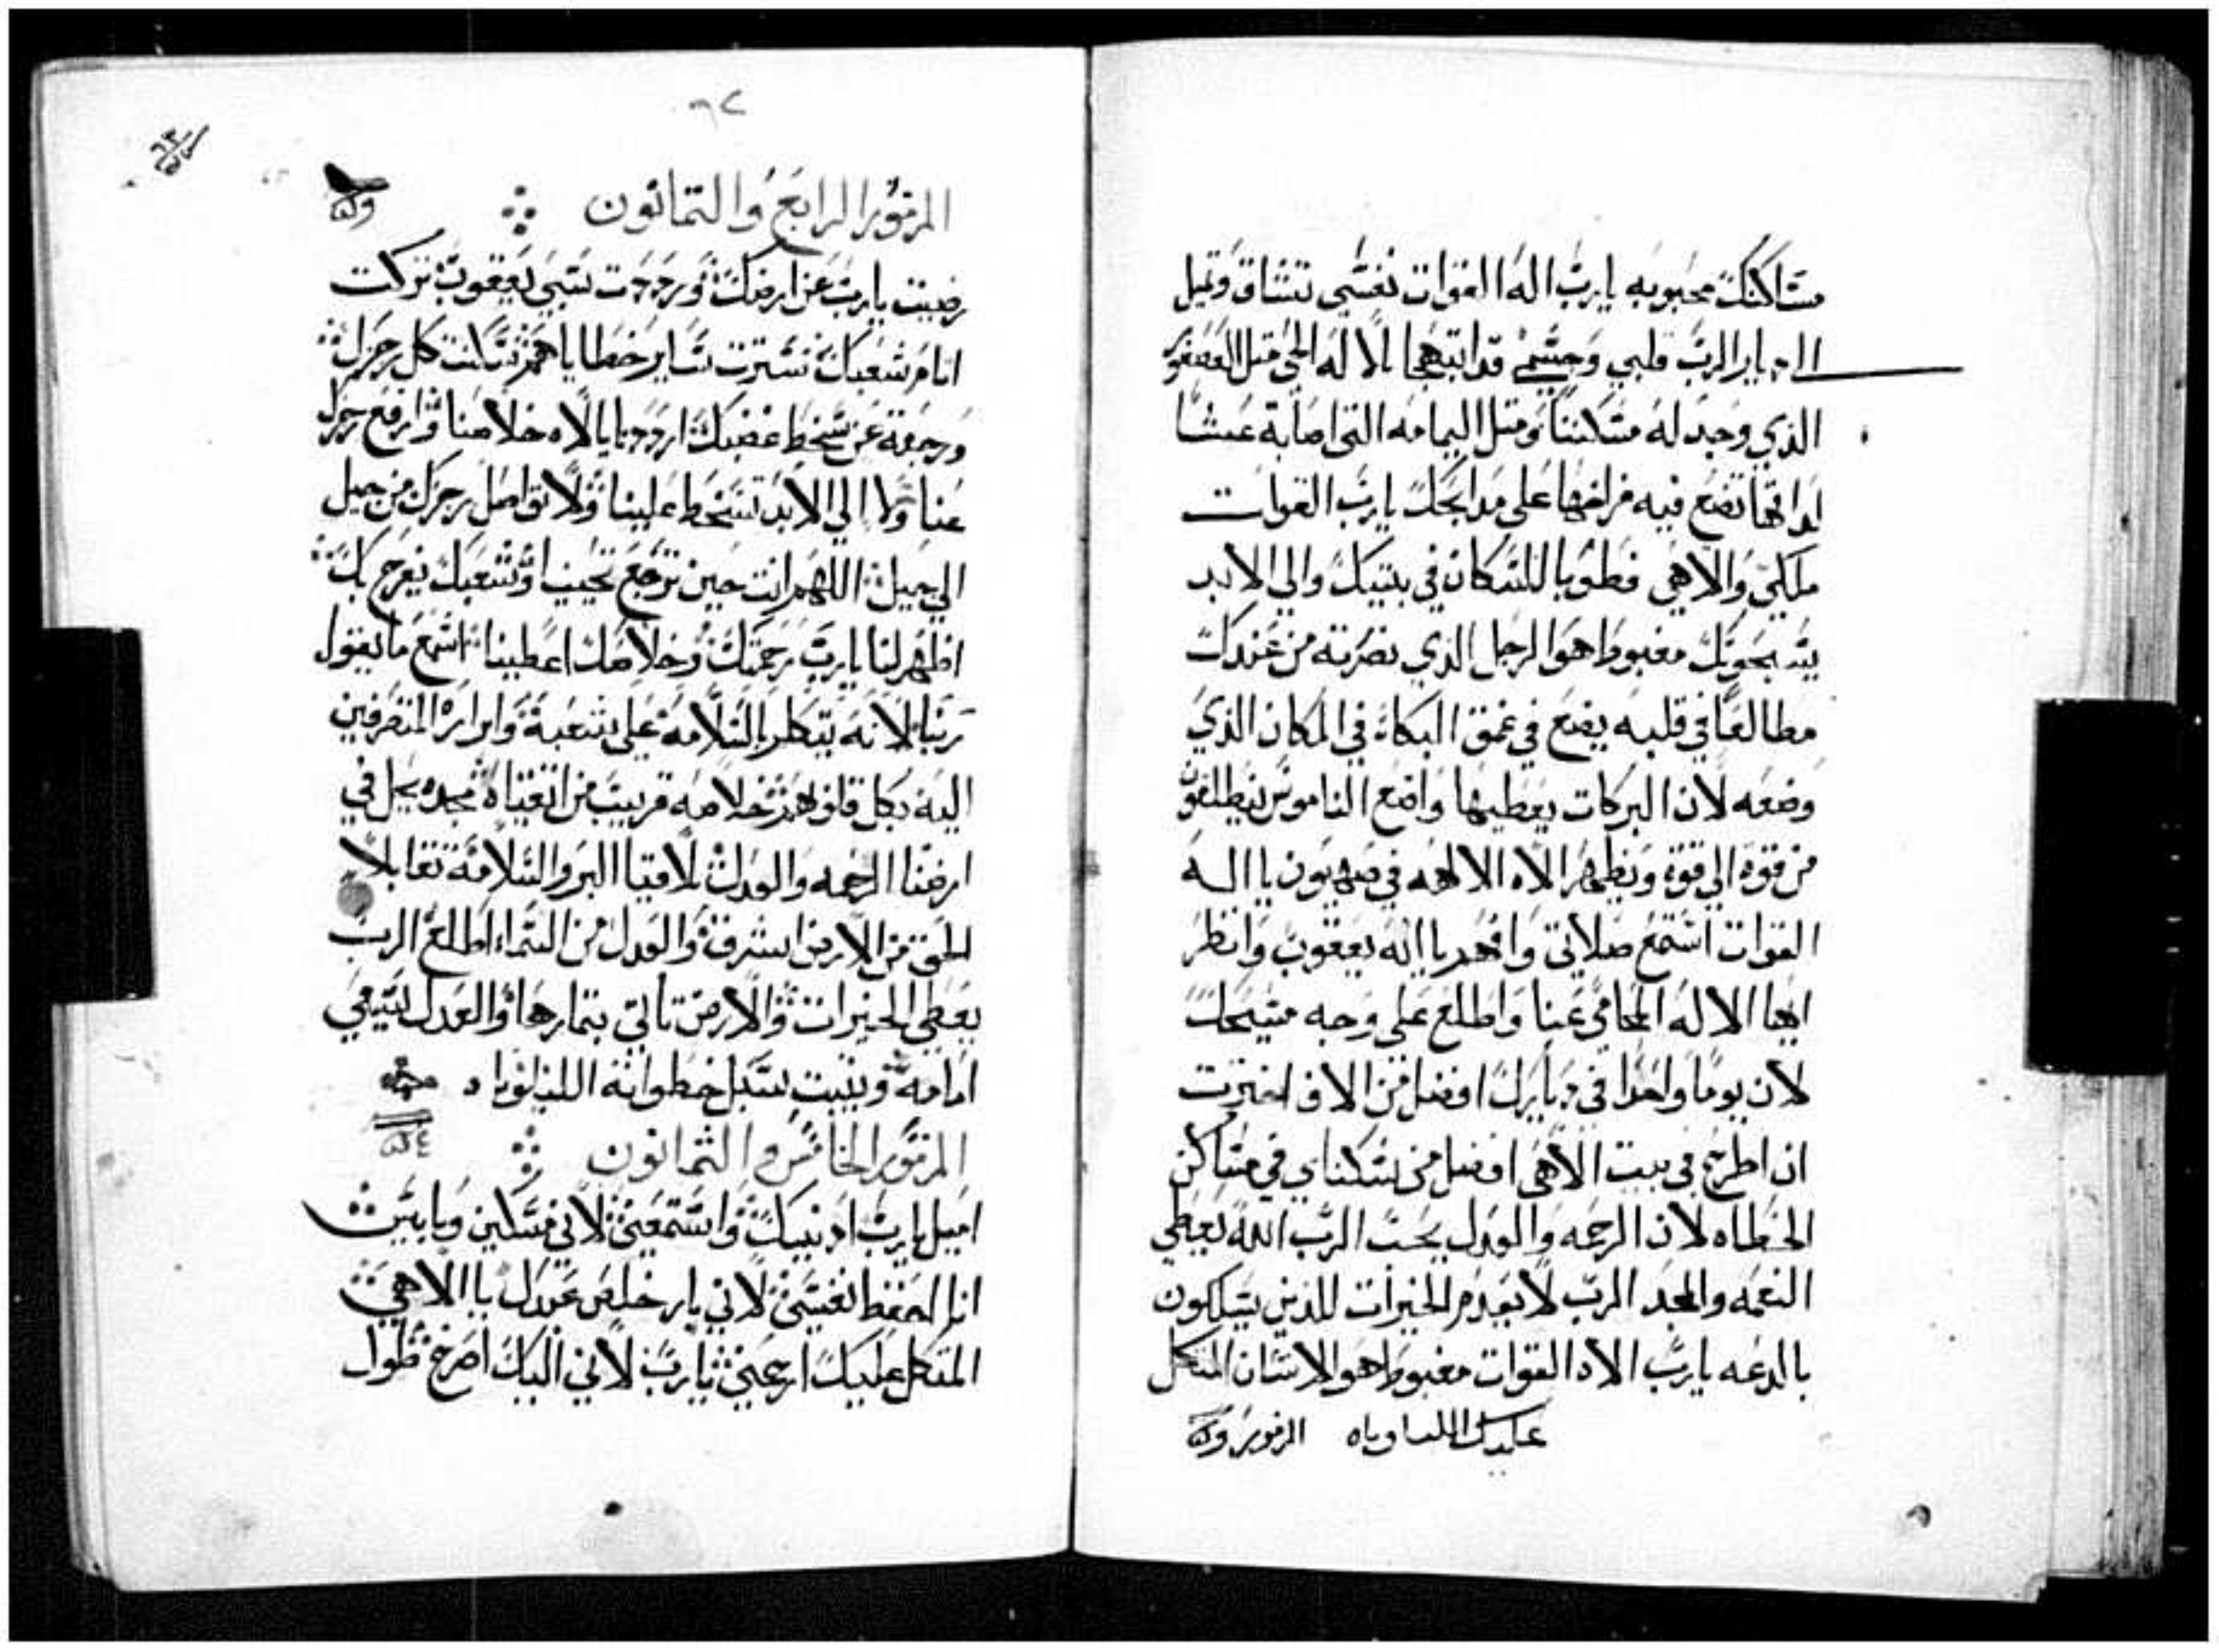 مساكنك محبوبه يارب اله القوات نفسي تشتاق وتميل
الي ديار الرب قلبي وجسمي قد ابتهجا بالاله الحي متل العصفور
الذي وجد له مسكنناً ومتل اليمامه التي اصابة عشا
لداتها تضع فيه فراخها علي مدابحك يارب القوات
ملكي والاهي فطوبا للسكان في بيتك والي الابد
يسبحونك مغبوطا هو الرجل الذي نصرته من عندك
مطالعاً في قلبه يضع في عمق البكاء في المكان الذي
وضعه لان البركات يعطيها واضع الناموس ينطلقون
من قوة الي قوة ويظهر الاه الالهه في صهيون يا اله
القوات استمع صلاتي وافهم يا اله يعقوب وانظر
ايها الاله المحامي عنا واطلع علي وجه مسيحك
لان يوماً واحدا في ديارك افضل من الاف اخترت
ان اطرح في بيت الاهي افضل من سكناي في مساكن
الخطاه لان الرحمه والعدل يحب الرب الله يعطي
النعمه والمجد الرب لا يعدم الخيرات للذين يسلكون
بالدعه يارب الاه القوات مغبوط هو الانسان المتكل
عليك الليلوياه المزمور
٦٢
المزمور الرابع والتمانون
رضيت يارب عن ارضك ورددت سبي يعقوب تركت
اتام شعبك سترت ساير خطاياهم سكنت كل رجزك
ورجعة عن سخط غضبك ارددنا يا الاه خلاصنا وارفع رجزك
عنا ولا الي الابد تسخط علينا ولا تواصل رجزك من جيل
الي جيل اللهم انت حين ترجع تحيينا وشعبك يفرح بك
اظهر لنا يارب رحمتك وخلاصك اعطينا اسمع ما يقول
ربنا لانه يتكلم بالسلامة علي شعبة وابراره المنصرفين
اليه بكل قلوبهم خلاصه قريب من اتقياه مجده يحل في
ارضنا الرحمه والعدل تلاقيا البر والسلامة تقابلا
الحق من الارض اشرق والعدل من السماء اطلع الرب
يعطي الخيرات والارض تاتي بتمارها والعدل يسعي
امامه ويثبت سبل خطواته الليلويا
المزمور الخامس والثمانون
اميل يارب ادنيك واستمعني لاني مسكين وبايس
انا احفظ نفسي لاني بار خلص عبدك يا الاهي
المتكل عليك ارحمني يارب لاني اليك اصرخ طول